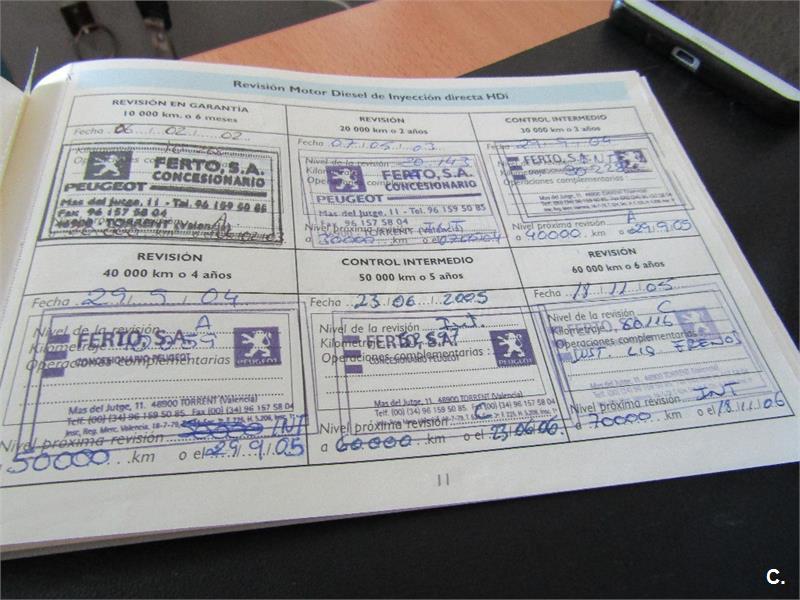 Revisión Motor Diesel de Inyección directa HDi
REVISIÓN EN GARANTÍA
10 000 km. o 6 meses
Fecha 06 / 02 / 02
FERTO, S.A.
CONCESIONARIO
PEUGEOT
Mas del Jutge, 11 - Tel. 96 159 50 85
Fax 96 157 58 04
46900 - TORRENT (Valencia)
REVISIÓN
20 000 km o 2 años
Fecha 07/05/03
Nivel de la revisión
Kilometraje 20.143
Operaciones complementarias
FERTO, S.A.
CONCESIONARIO
PEUGEOT
Mas del Jutge, 11 - Tel. 96 159 50 85
Fax 96 157 58 04
TORRENT (Valencia)
Nivel próxima revisión INT
a 30000 km o el
CONTROL INTERMEDIO
30 000 km o 3 años
Fecha 29/9/04
FERTO, S.A.
Operaciones complementarias
Mas del Jutge, 11. 48900 TORRENT (Valencia)
Nivel próxima revisión A
a 40000 km o el 29/9/05
REVISIÓN
40 000 km o 4 años
Fecha 29/9/04
Nivel de la revisión A
Kilometraje
Operaciones complementarias
FERTO, S.A.
CONCESIONARIO PEUGEOT
PEUGEOT
Mas del Jutge, 11. 48900 TORRENT (Valencia)
Telf. (00) (34) 96 159 50 85 Fax (00) (34) 96 157 58 04
Nivel próxima revisión INT
a 50000 km o el 29/9/05
CONTROL INTERMEDIO
50 000 km o 5 años
Fecha 23/06/2005
Nivel de la revisión Int.
Kilometraje
Operaciones complementarias :
FERTO, S.A.
CONCESIONARIO PEUGEOT
PEUGEOT
Mas del Jutge, 11. 48900 TORRENT (Valencia)
Telf. (00) (34) 96 159 50 85 Fax (00) (34) 96 157 58 04
Nivel próxima revisión C
a 60000 km o el 23/06/06
REVISIÓN
60 000 km o 6 años
Fecha 18/11/05
Nivel de la revisión C
Kilometraje 60116
Operaciones complementarias
SUST. LIQ. FRENOS
Nivel próxima revisión INT
a 70000 km o el 18/11/06
11
C.